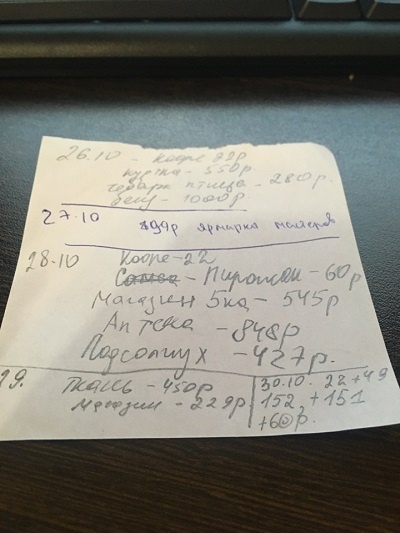 26.10 - кофе 22р
куртка - 550р
птица - 280р.
1000р
27.10 499р ярмарка мастеров
28.10 Кофе - 22
Пирожок - 60р
Магазин 5ка - 545р
Аптека - 848р
Подсолнух - 427р.
29. Ткань - 450р
магазин - 229р
30.10. 22 + 49
152 + 151
+60р.